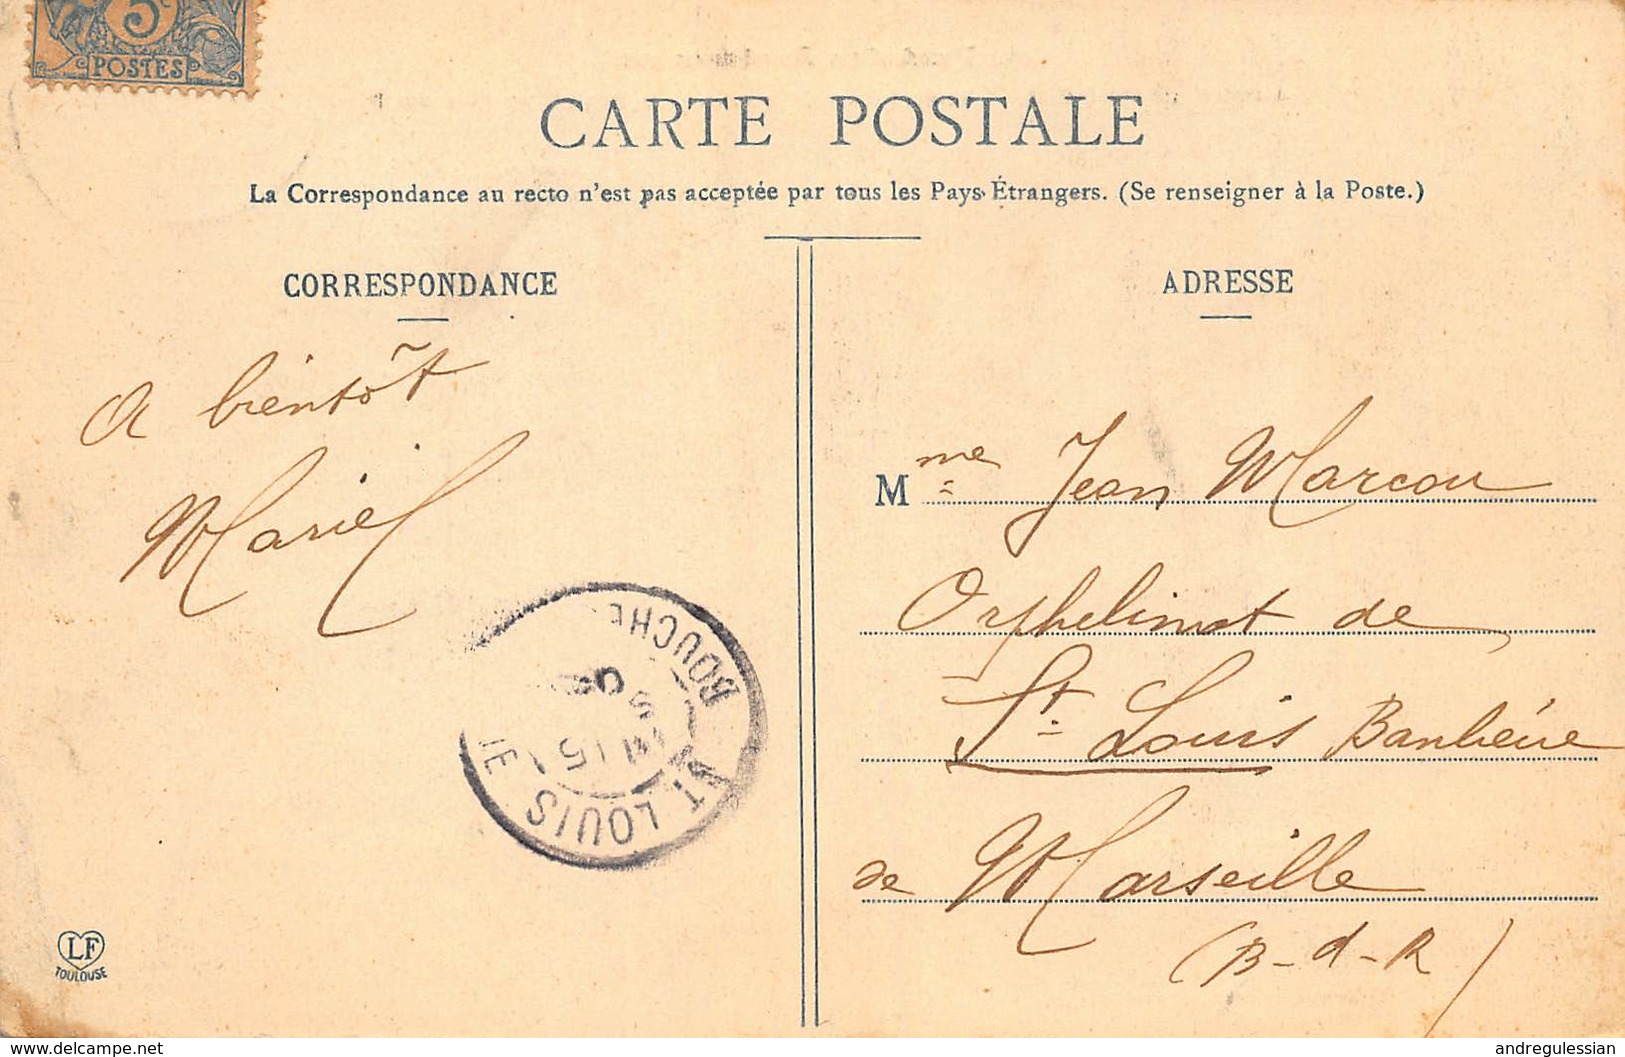 5c
POSTES
CARTE POSTALE
La Correspondance au recto n'est pas acceptée par tous les Pays Étrangers. (Se renseigner à la Poste.)
CORRESPONDANCE
A bientôt
Mariel
BOUCHE
ST LOUIS
LF
TOULOUSE
ADRESSE
Mme Jean Marcou
Orphelinat de
St Louis Banliéue
de Marseille
(B-d-R)
www.delcampe.net
andregulessian